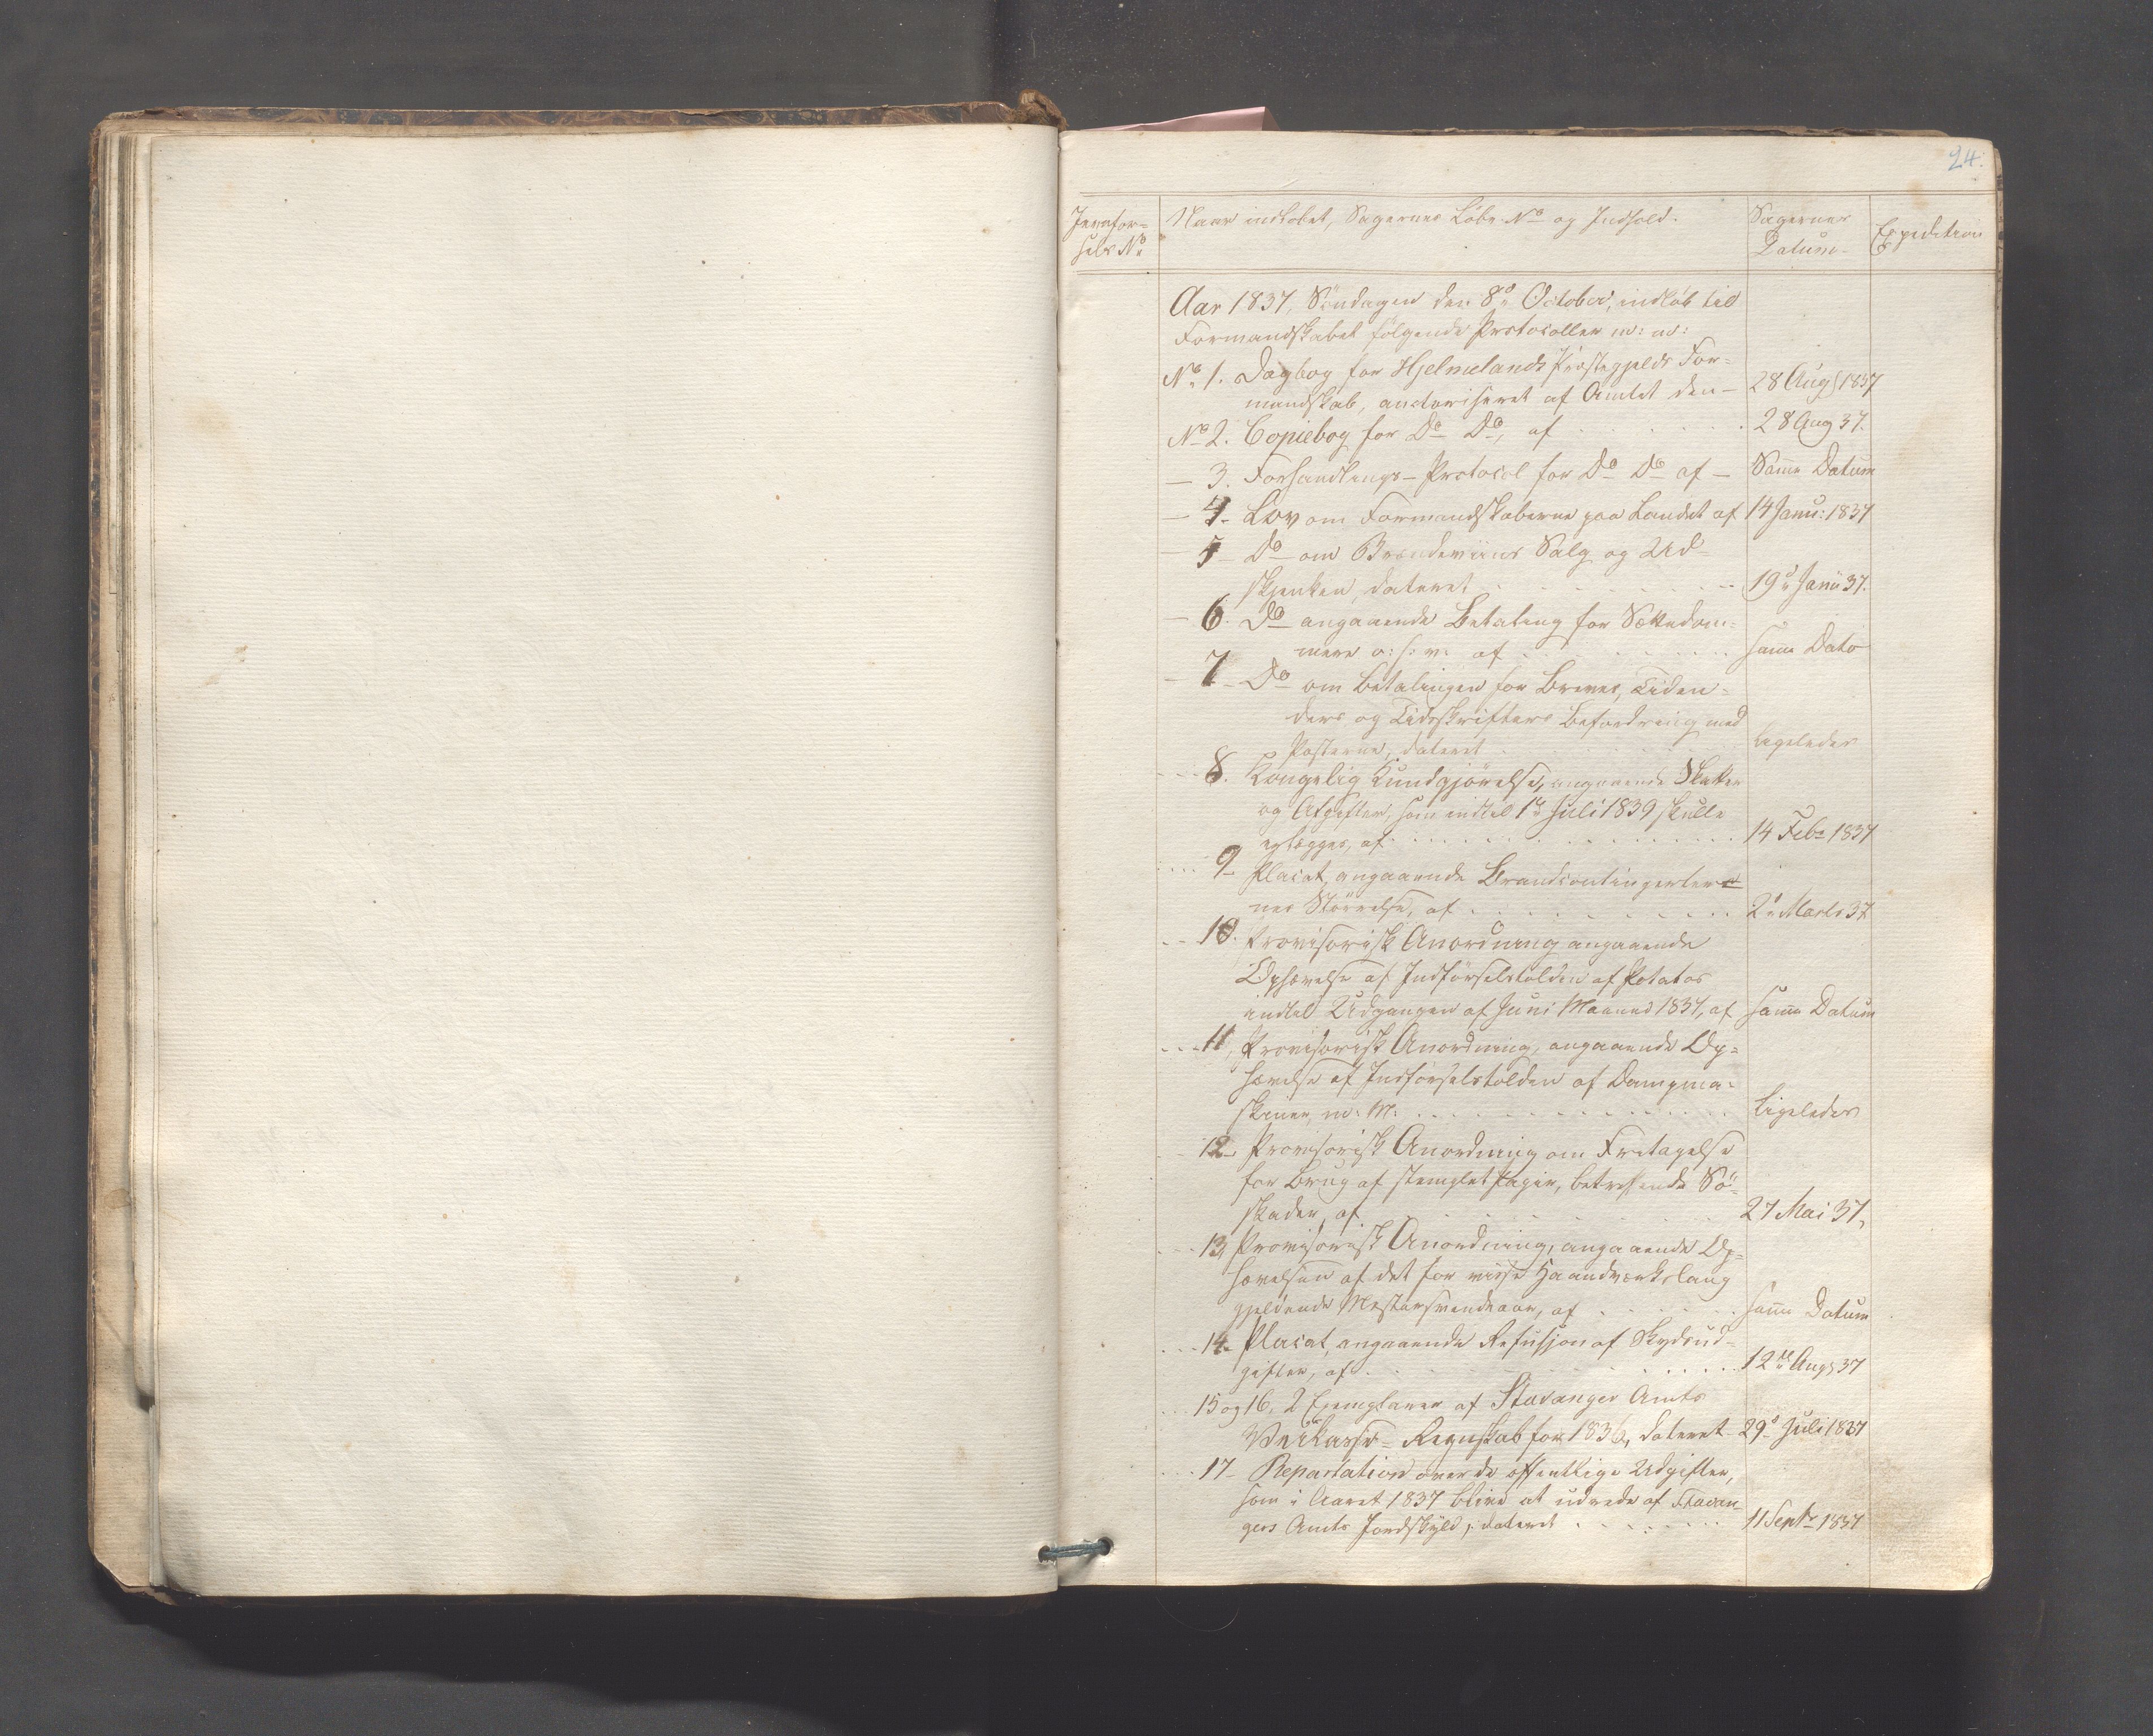 24.
Jevnfør=
selv No
Naar indløbet, Sagernes Løbe No og Indhold.
Sagernes
Datum
Expedition
Aar 1837, Søndagen den 8de October, indløb til
Formandskabet følgende Protocoller m: m:
No 1. Dagbog for Hjelmelands Præstegjelds For=
mandskab, auctoriseret af Amtet den — 28 Aug 1837
No 2. Copiebog for Do Do, af . . . . . . 28 Aug 37.
— 3. Forhandlings-Protocol for Do Do af — Samme Datum
— 4. Lov om Formandskaberne paa Landet af 14 Janu: 1837
— 5 Do om Brændeviins Salg og Ud=
skjenken, dateret . . . . . . . 19de Janu 37.
— 6. Do angaaende Betaling for Sættedom=
mere o: s: v: af . . . . . . . samme Dato
— 7 Do om Betalingen for Breves, Tiden=
ders og Tidsskrifters Befordring med
Posterne, dateret . . . . . . ligeledes
8. Kongelig Kundgjørelse, angaaende Skatter
og Afgifter, som indtil 1ste Juli 1839 skulle
erlægges, af . . . . . . . . . 14 Febr 1837
9 Placat, angaaende Brandcontingenter
nes Størrelse, af . . . . . . . 2de Marts 37
10. Provisorisk Anordning angaaende
Ophævelse af Indførselstolden af Potatos
indtil Udgangen af Juni Maaned 1837, af samme Datum
11, Provisorisk Anordning, angaaende Op=
hævelse af Indførselstolden af Dampma=
skiner, m: M: . . . . . . . . . ligeledes
12 Provisorisk Anordning om Fritagelse
for Brug af stemplet Papir, betreffende Sö=
skader, af . . . . . . . . 27 Mai 37,
13, Provisorisk Anordning, angaaende Op=
hævelsen af det for visse Haandværkslaug
gjeldende Mestersvendeaar, af . . . . . samme Datum
14. Placat, angaaende Refusion af Skydsud=
gifter, af . . . . . . . . . 12te Aug 37
15 og 16, 2 Exemplarer af Stavanger Amts
Veikasse-Regnskab for 1836, dateret 29de Juli 1837
17 Repartation over de offentlige Udgifter,
som i Aaret 1837 blive at udrede af Stavan=
gers Amts Jordskyld, dateret . . . . . . 11 Septr 1837